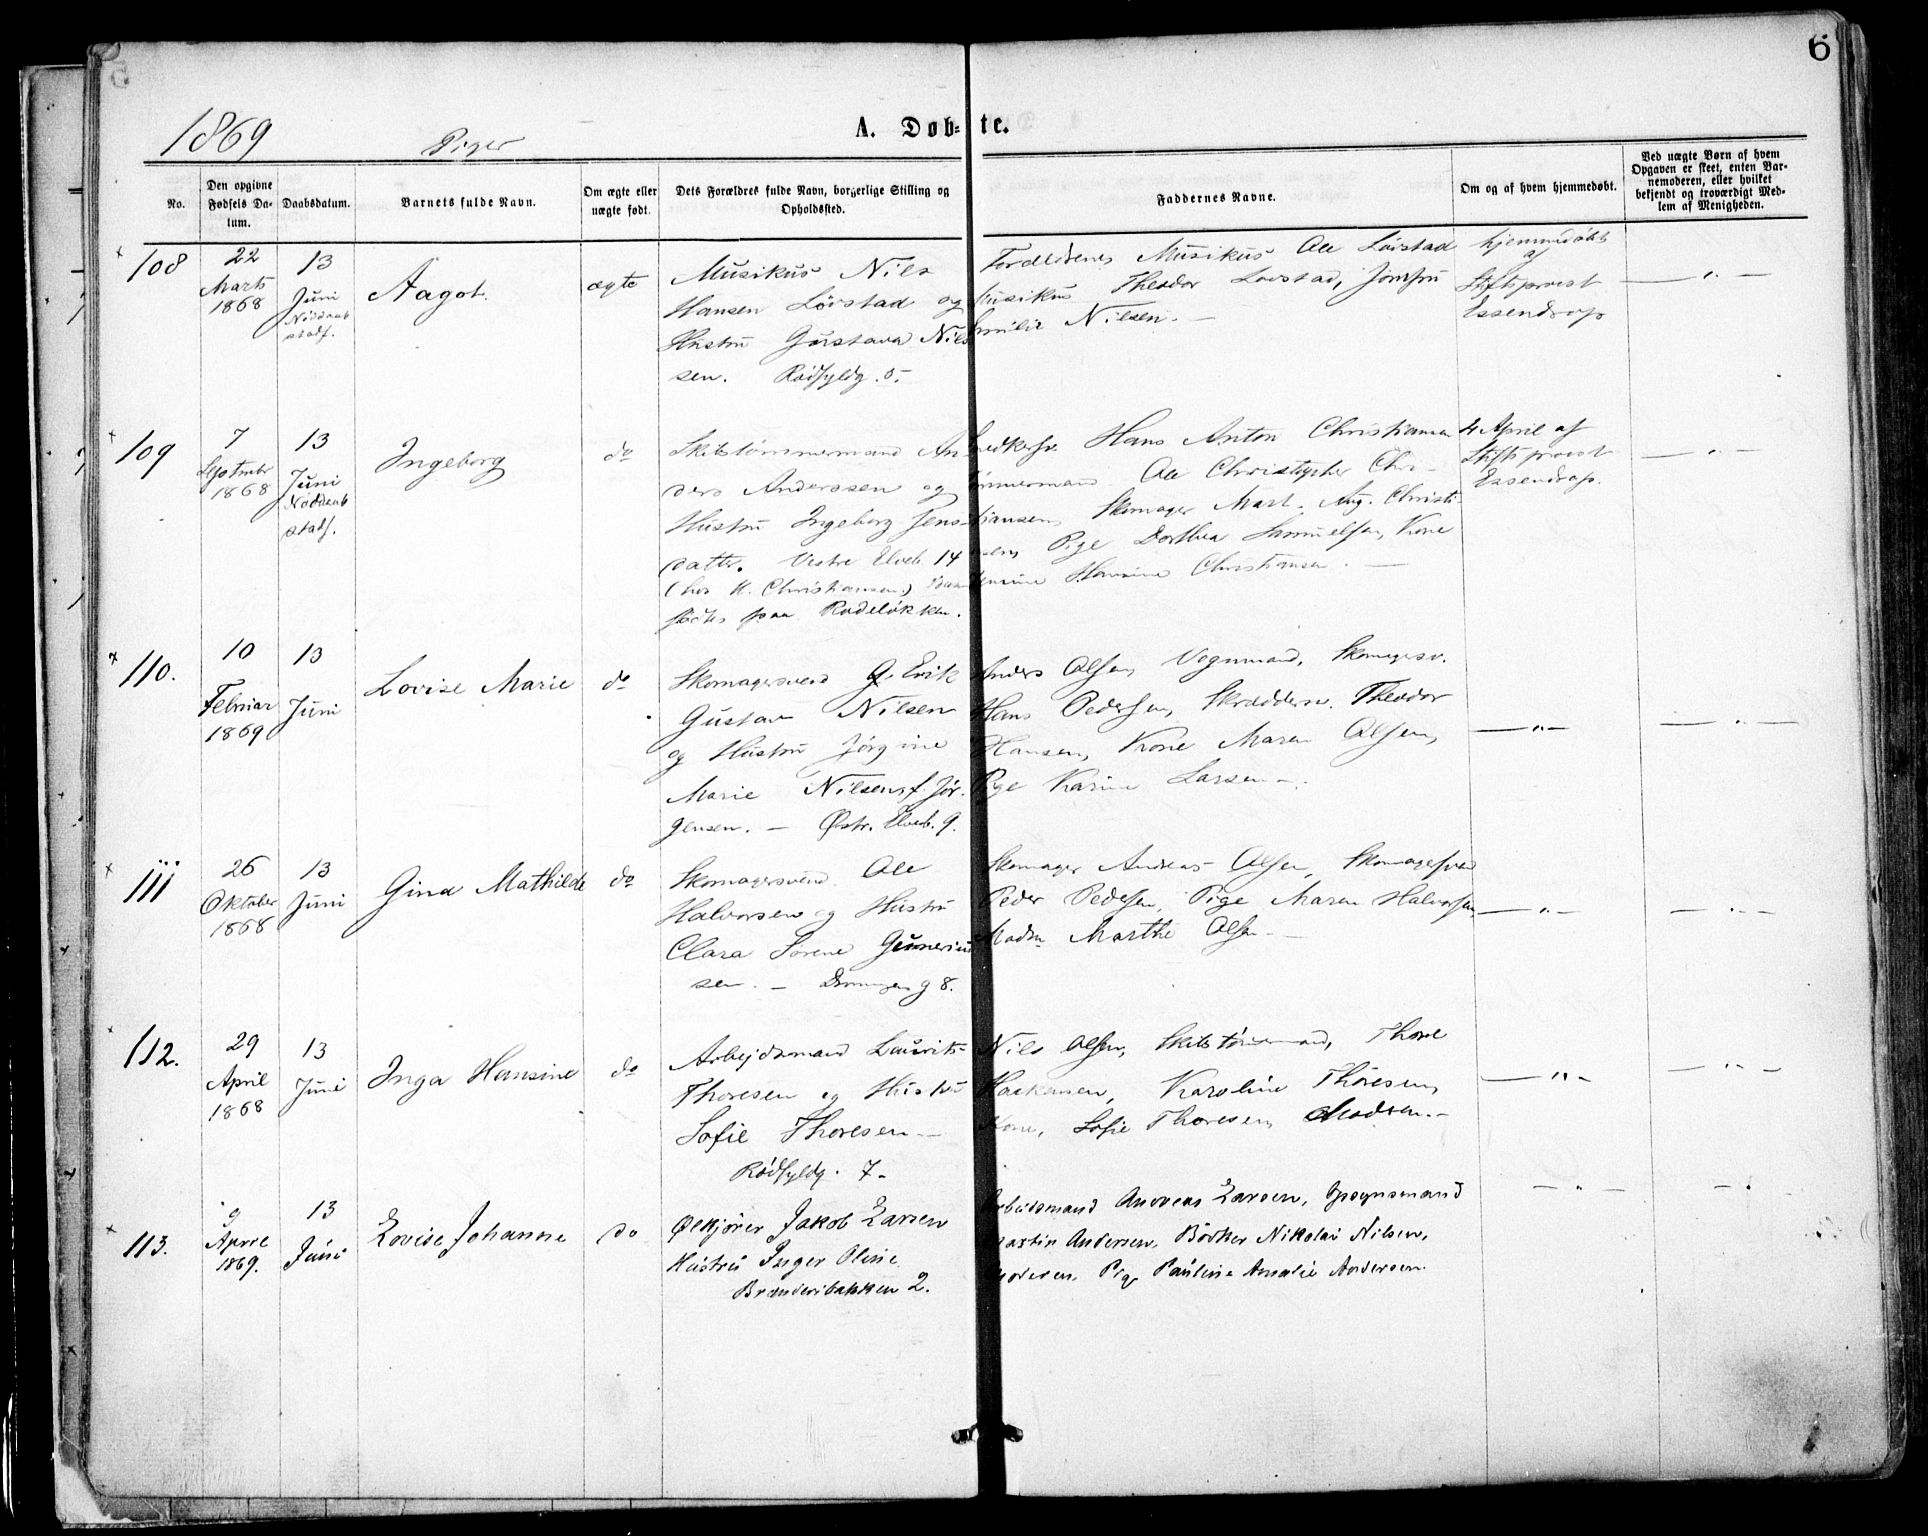 6
1869
Piger
A. Døb-te.
No.
Den opgivne Fødsels Da-tum.
Daabsdatum.
Barnets fulde Navn.
Om ægte eller uægte født.
Dets Forældres fulde Navn, borgerlige Stilling og Opholdssted.
Faddernes Navne.
Om og af hvem hjemmedøbt.
Ved uægte Børn af hvem Opgaven er skeet, enten Bar-nemoderen, eller hvilket bekjendt og troværdigt Med-lem af Menigheden.
108
22 Marts 1868
13 Juni
Aagot.
ægte
Musikus Nils
Hansen Lövstad og
Hustru Gustava Nils
sen. Rödfyldg. 5.
Forældrenes Musikus Ole Lövstad
Musikus Theodor Lovstad, Jomfru
Emilie Nilsen.
hjemmedøbt
af
Stiftsprovst
Essendrop
109
7 Septmbr 1868
13 Juni
Ingeborg
do
Skibstömmermand An
ders Anderssen og
Hustru Ingeborg Jens
datter. Vestre Elveb. 14
(hos H. Christiansen) Barn
födtes paa Rodelökken.
Snedkersv. Hans Anton Christiansen
Tömmermand Ole Christopher Chri-
stiansen, Skomager Mart. Aug. Christi-
ansen, Pige Dorthea Samuelsen, Kone
Hansine Christiansen.
4 April af
Stiftsprovst
Essendrop.
110.
10 Februar 1869
13 Juni
Lovise Marie
do
Skomagersvend G. Erik
Gustav Nilsen
og Hustru Jörgine
Marie Nilsen, f. Jör.
gensen. – Østr. Elveb. 9.
Anders Olsen, Vognmand, Skomagersv.
Hans Pedersen, Skræddersv. Theodor
Hansen, Kone Maren Olsen,
Pige Karine Larsen –
111
26 Oktober 1868
13 Juni
Gina Mathilde
do
Skomagersvend Ole
Halvorsen og Hustru
Clara Sörene Gunerius
sen. –
Skomager Andreas Olsen, Skomagersvend
Peder Pedersen, Pige Maren Halvorsen
Madm Marthe Olsen –
112.
29 April 1868
13 Juni
Inga Hansine
do
Arbeidsmand Laurits
Thoresen og Hustru
Sofie Thoresen –
Rödfyldg. 7 –
Nils Olsen, Skibstömmermand, Thore
Haakensen, Karoline Thoresen,
Kone, Sofie Thoresen, Madsen. –
113.
9 April 1869.
13 Juni
Lovise Johanne
do
Ølkjörer Jakob Larsen
Hustru Inger Oline
Brænderibakken 2.
Arbeidsmand Andreas Larsen, Opsynsmand
Martin Andersen, Bödker Nikolai Nilsen,
Moderen, Pige Pauline Amalie Andersen.